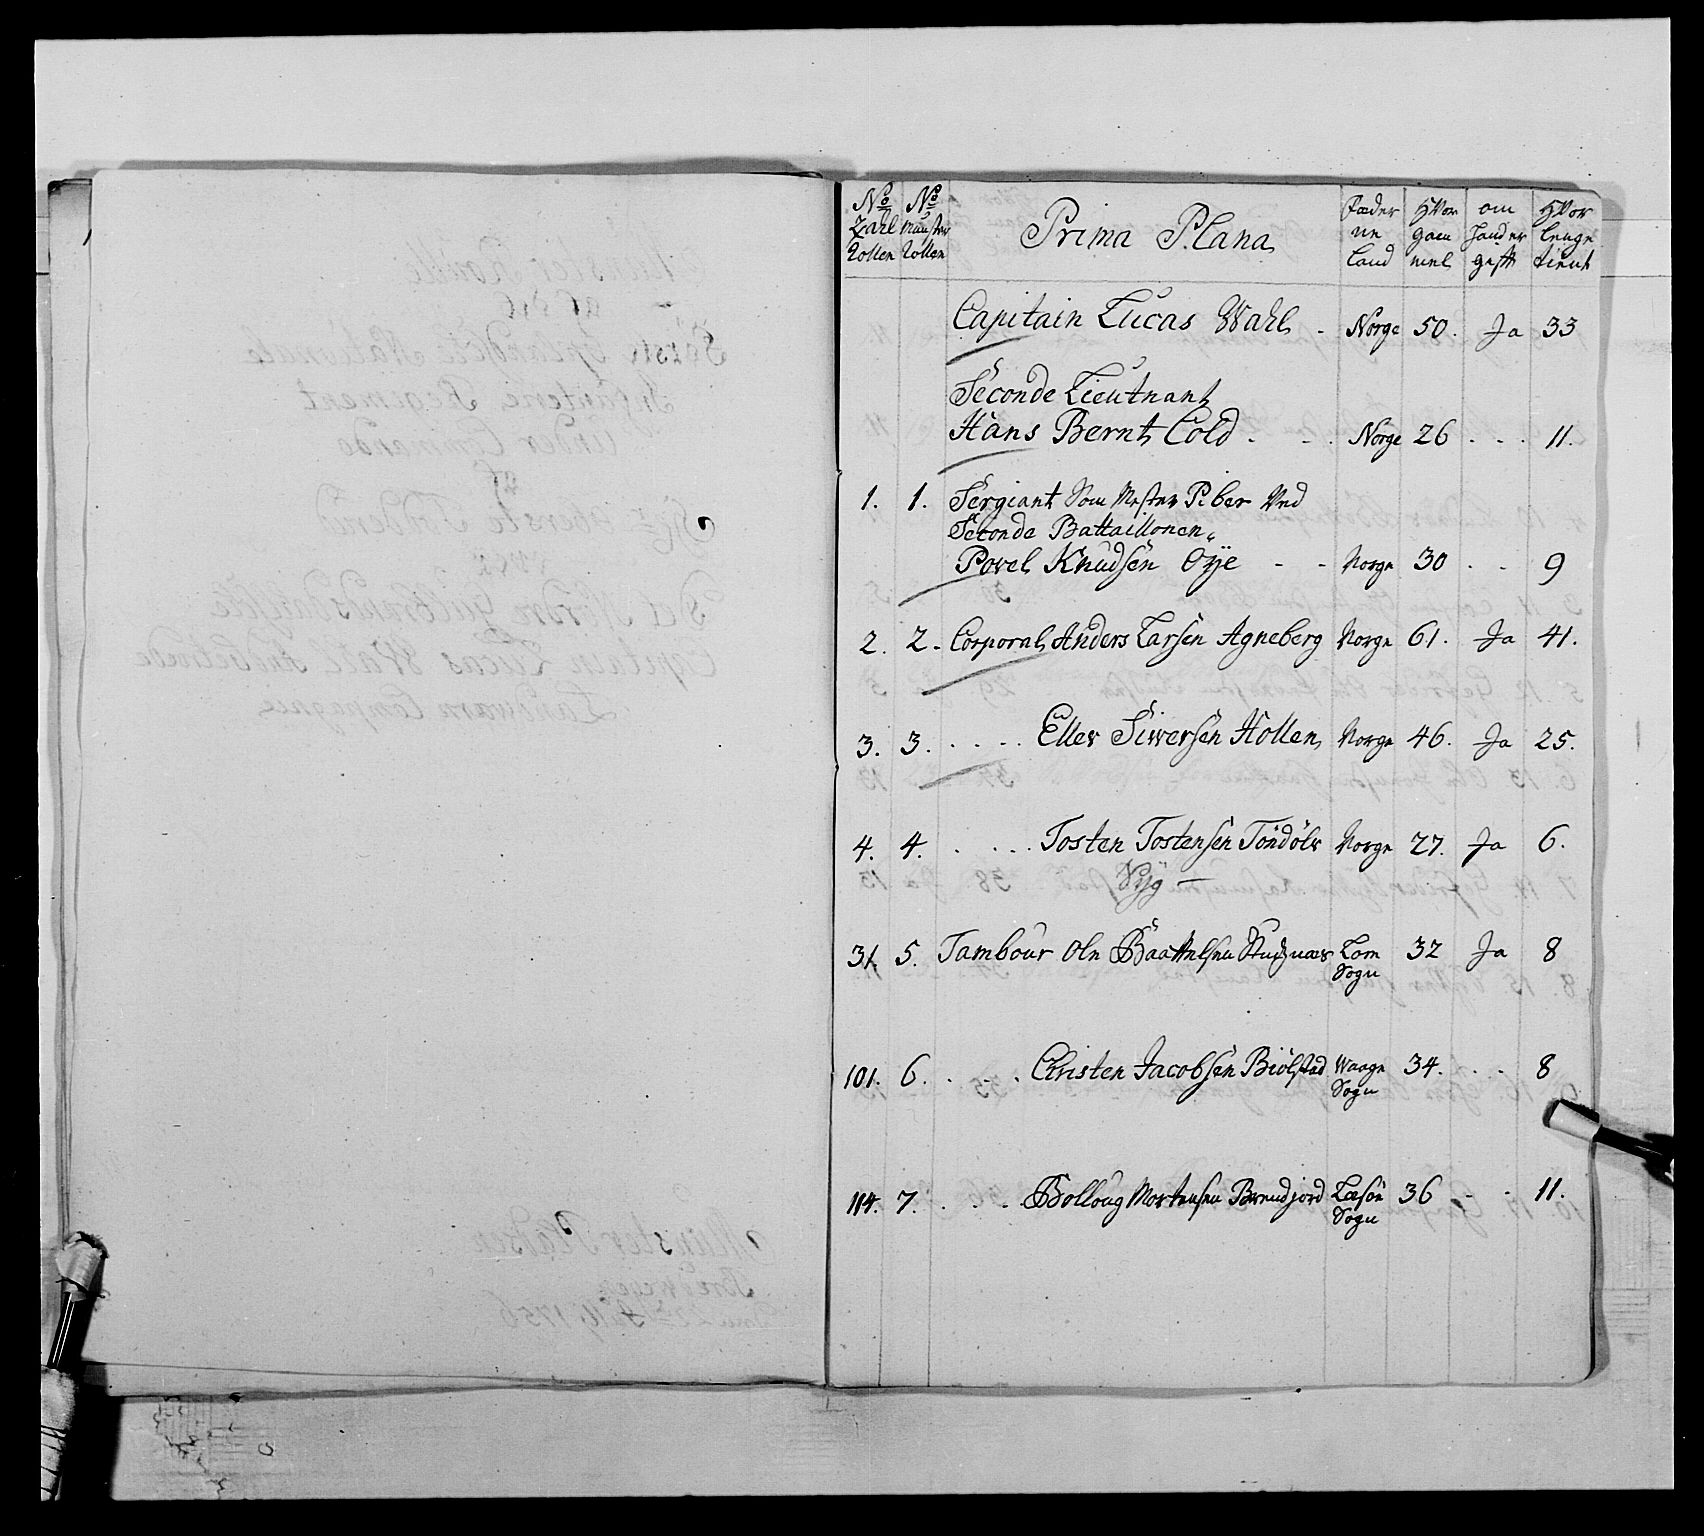 No Zahl Rollen | No Munster Rollen | Prima Plana | Fæder ne Land | Hvor gam mel | om gift | Hvor lenge tient
Capitain Lucas Wahl - Norge 50. Ja 33
Seconde Lieutnant
Hans Bernt Cold - - . Norge 26 . . . 11.
1. 1. Sergiant Som Mester Piber Ved
Seconde Battaillonen
Povel Knudsen Oÿe - - Norge 30 . . 9
2. 2. Corporal Anders Larsen Agneberg Norge 61. Ja 41.
3. 3. . . . . Eller Siversen Hollen Norge 46. Ja 25.
4. 4. . . . . Tosten Tostensen Norge 27. Ja 6.
Syg —
31. 5. Tambour Ole Lom 32 Ja 8
Sogn
101. 6. . . . Christen Jacobsen Biölstad Waage 34. . . . 8
Sogn
114. 7. . . . Bolloug Mortensen Lesöe 36 - . 11.
Sogn